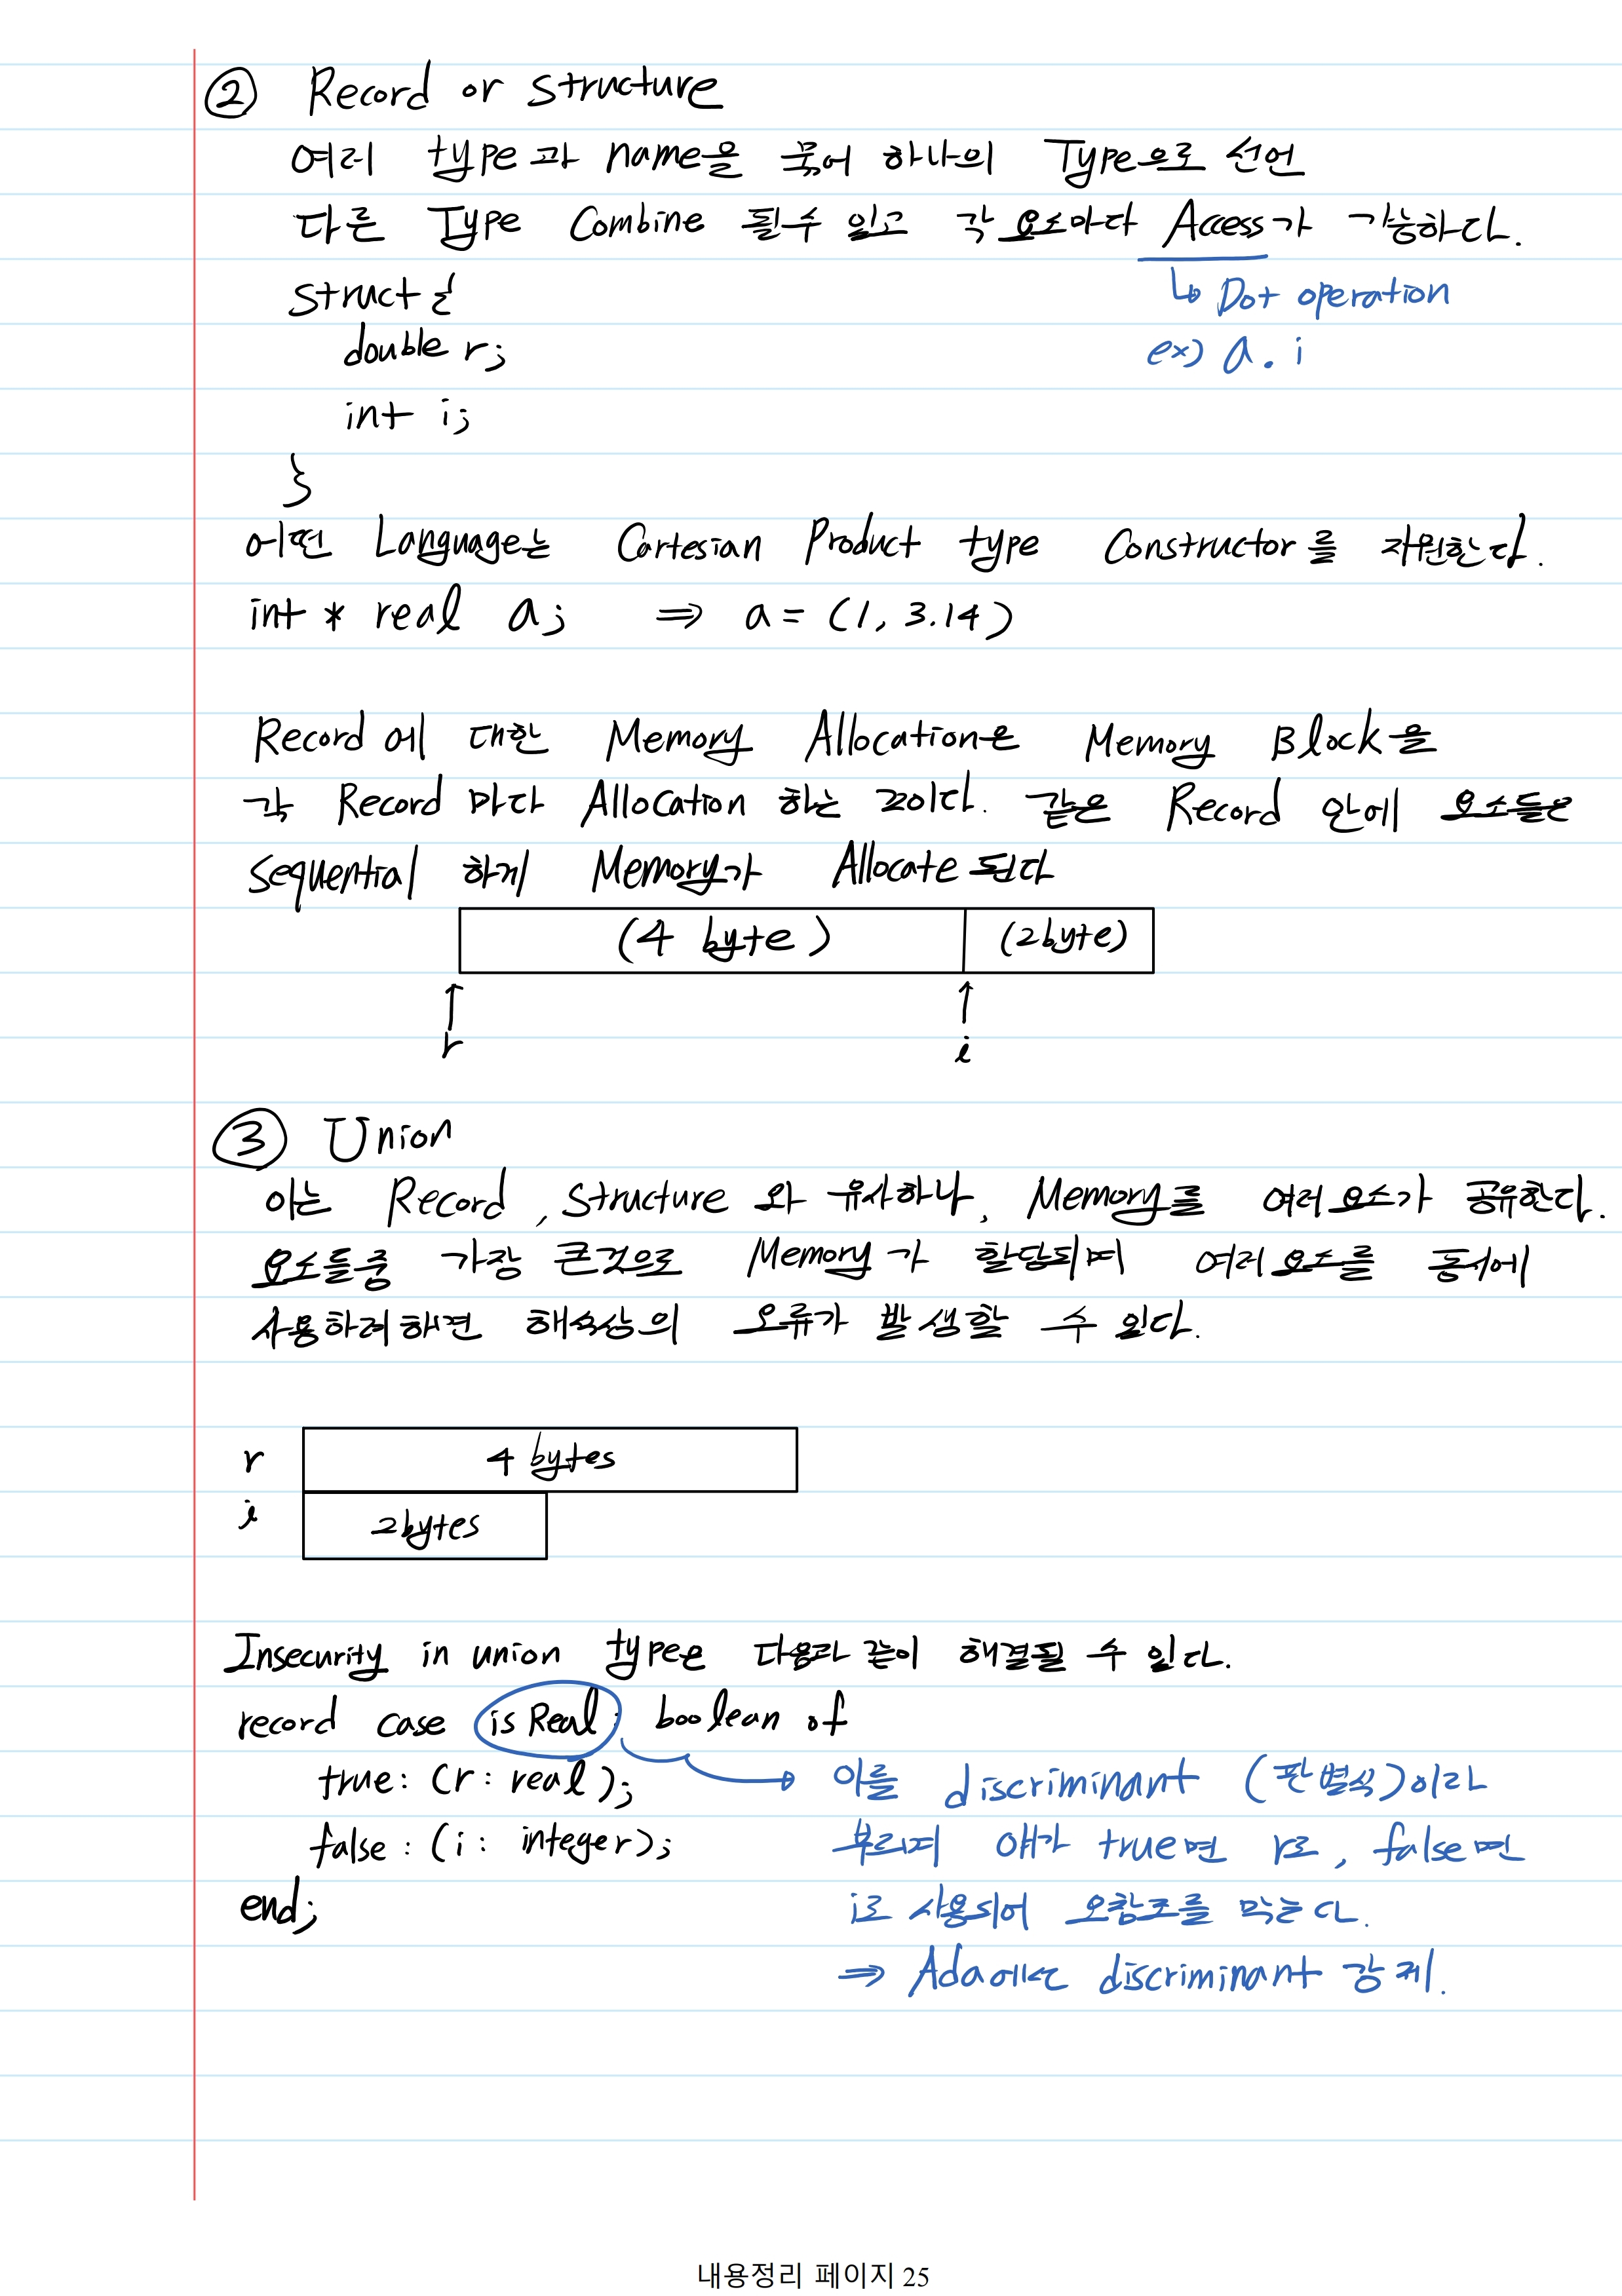 ② Record or structure
여러 type과 name을 묶어 하나의 Type으로 선언
다른 Type Combine 될수 있고 각 요소마다 Access가 가능하다.
struct {
↳ Dot operation
double r;
ex) a.i
int i;
}
어떤 Language는 Cartesian Product type Constructor를 지원한다.
int * real a; ⇒ a = (1, 3.14)
Record 에 대한 Memory Allocation은 Memory Block을
각 Record 마다 Allocation 하는 것이다. 같은 Record 안에 요소들은
Sequential 하게 Memory가 Allocate 된다
(4 byte) (2byte)
↑ ↑
r i
③ Union
이는 Record, Structure 와 유사하나, Memory를 여러 요소가 공유한다.
요소들중 가장 큰것으로 Memory가 할당되며 여러 요소를 동시에
사용하려 하면 해석상의 오류가 발생할 수 있다.
r 4 bytes
i 2bytes
Insecurity in union type은 다음과 같이 해결될 수 있다.
record case isReal : boolean of
true: (r: real);
이를 discriminant (판별식)이라
false: (i: integer);
부르며 얘가 true면 r로, false면
end;
i로 사용되어 오참조를 막는다.
⇒ Ada에선 discriminant 강제.
내용정리 페이지 25